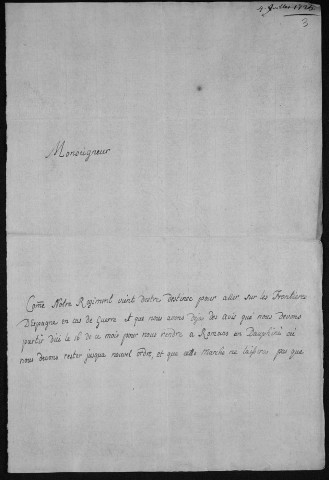 4 Juillet
3
Monseigneur
Come Notre Regiment vient destre destiné pour aller sur les Frontieres
D'Espagne en cas de Guerre et que nous avons deja des avis que nous devons
partir d'ici le 16 de ce mois pour nous rendre a Romans en Dauphiné où
nous devons rester jusque nouvel ordre, et que cette Marche ne laissera pas que